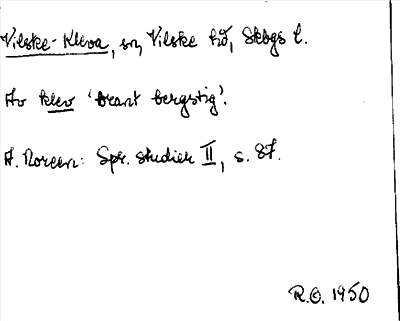 Vilske-Kleva, sn, Vilske hd, Skbgs l.
Av klev 'brant bergstig'.
A. Noreen: Spr. studier II, s. 87.
R.O. 1950